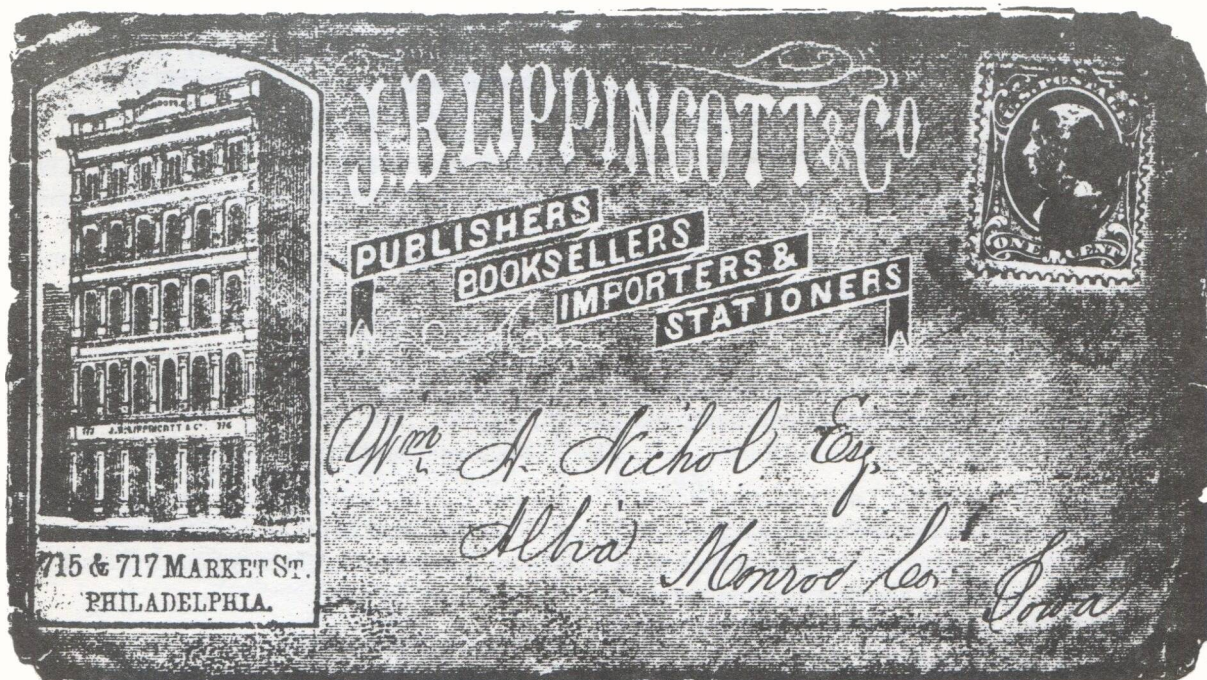 J.B. LIPPINCOTT & Co
PUBLISHERS
BOOKSELLERS
IMPORTERS &
STATIONERS
J.B. LIPPINCOTT & Co.
715 & 717 MARKET ST.
PHILADELPHIA.
ONE CENT
Wm A. Nichol Esq.
Albia
Monroe Co.
Iowa